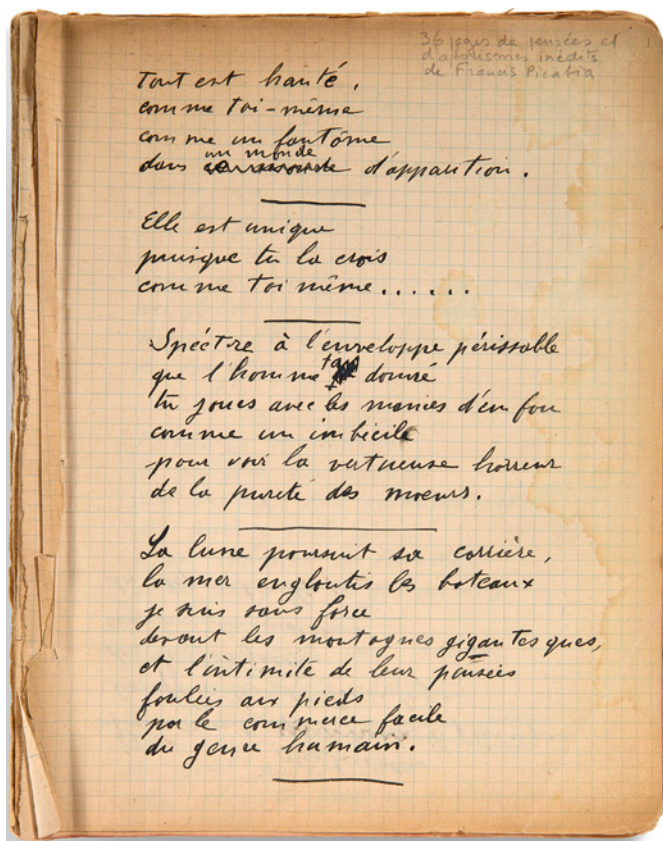 36 pages de pensées et
d'aphorismes inédits
de Francis Picabia
Tout est hanté,
comme toi-même
comme un fantôme
un monde
dans d'apparition.
Elle est unique
puisque tu la crois
comme toi même......
Spéctre à l'enveloppe périssable
que l'homme t'a donné
tu joues avec les manies d'un fou
comme un imbécile
pour voir la vertueuse horreur
de la pureté des moeurs.
La lune poursuit sa carrière,
la mer engloutis les bateaux
je suis sans force
devant les montagnes gigantesques,
et l'intimité de leur pensées
foulées aux pieds
par le commerce facile
du genre humain.